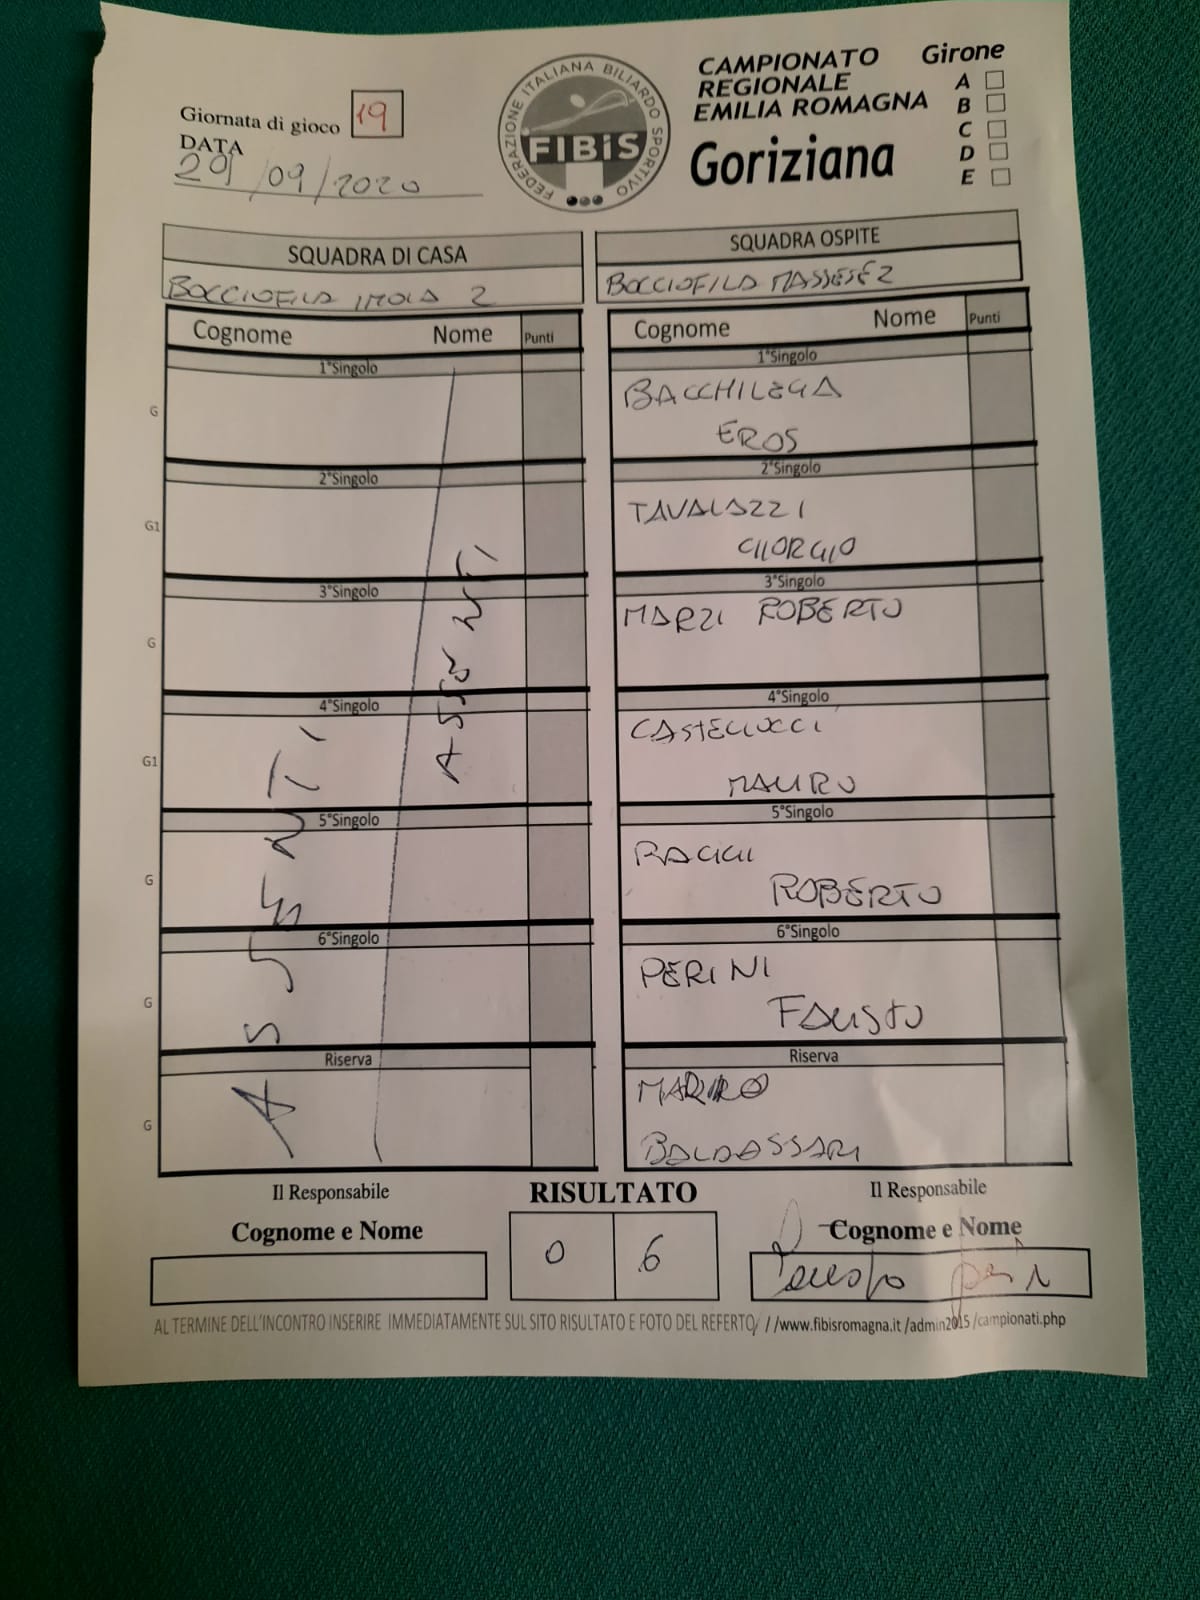 Giornata di gioco 19
DATA
29/09/2020
FEDERAZIONE ITALIANA BILIARDO SPORTIVO
FIBiS
CAMPIONATO
REGIONALE
EMILIA ROMAGNA
Goriziana
Girone
A
B
C
D
E
SQUADRA DI CASA
BOCCIOFILA IMOLA 2
Cognome Nome Punti
1°Singolo
G
2°Singolo
G1
3°Singolo
G
4°Singolo
G1
5°Singolo
G
6°Singolo
G
Riserva
G
ASSENTI
ASSENTI
SQUADRA OSPITE
BOCCIOFILA MASSESE 2
Cognome Nome Punti
1°Singolo
BACCHILEGA
EROS
2°Singolo
TAVALAZZI
GIORGIO
3°Singolo
MARZI ROBERTO
4°Singolo
CASTELLUCCI
MAURO
5°Singolo
RAGGI
ROBERTO
6°Singolo
PERINI
FAUSTO
Riserva
BALDASSARI
Il Responsabile
Cognome e Nome
RISULTATO
0 6
Il Responsabile
Cognome e Nome
AL TERMINE DELL'INCONTRO INSERIRE IMMEDIATAMENTE SUL SITO RISULTATO E FOTO DEL REFERTO/ //www.fibisromagna.it /admin2015 /campionati.php